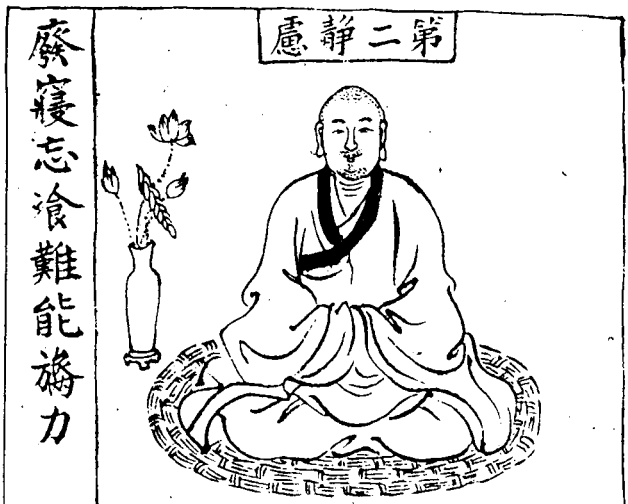 第二靜慮
廢寢忘飡難能力